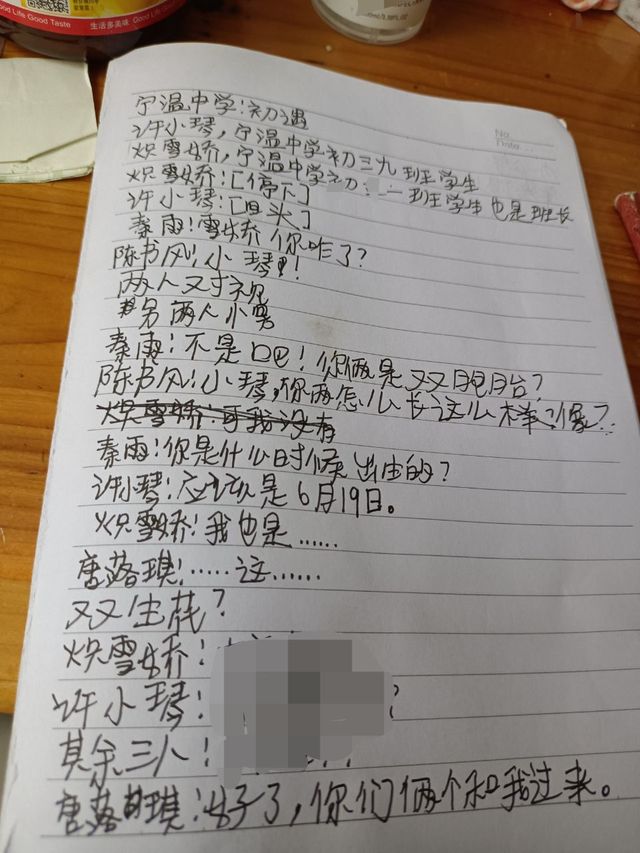 Good Life Good Taste
生活多美味
No.
Date.
宁温中学:初遇
许小琴,宁温中学初三九班学生
炽雪娇,宁温中学初 一班学生也是班长
炽雪娇:[停下]
许小琴:[回头]
秦雨:雪娇你咋了?
陈书风:小琴!
两人对视
另两人小声
秦雨:不是吧!你俩是双胞胎?
陈书风:小琴,你两怎么长这么样像?
炽雪娇:可我没有
秦雨:你是什么时候出生的?
许小琴:应该是6月19日。
炽雪娇:我也是……
唐落琪:……这……
双生花?
炽雪娇:
许小琴: ?
其余三人:
唐落琪:好了,你们俩个和我过来。